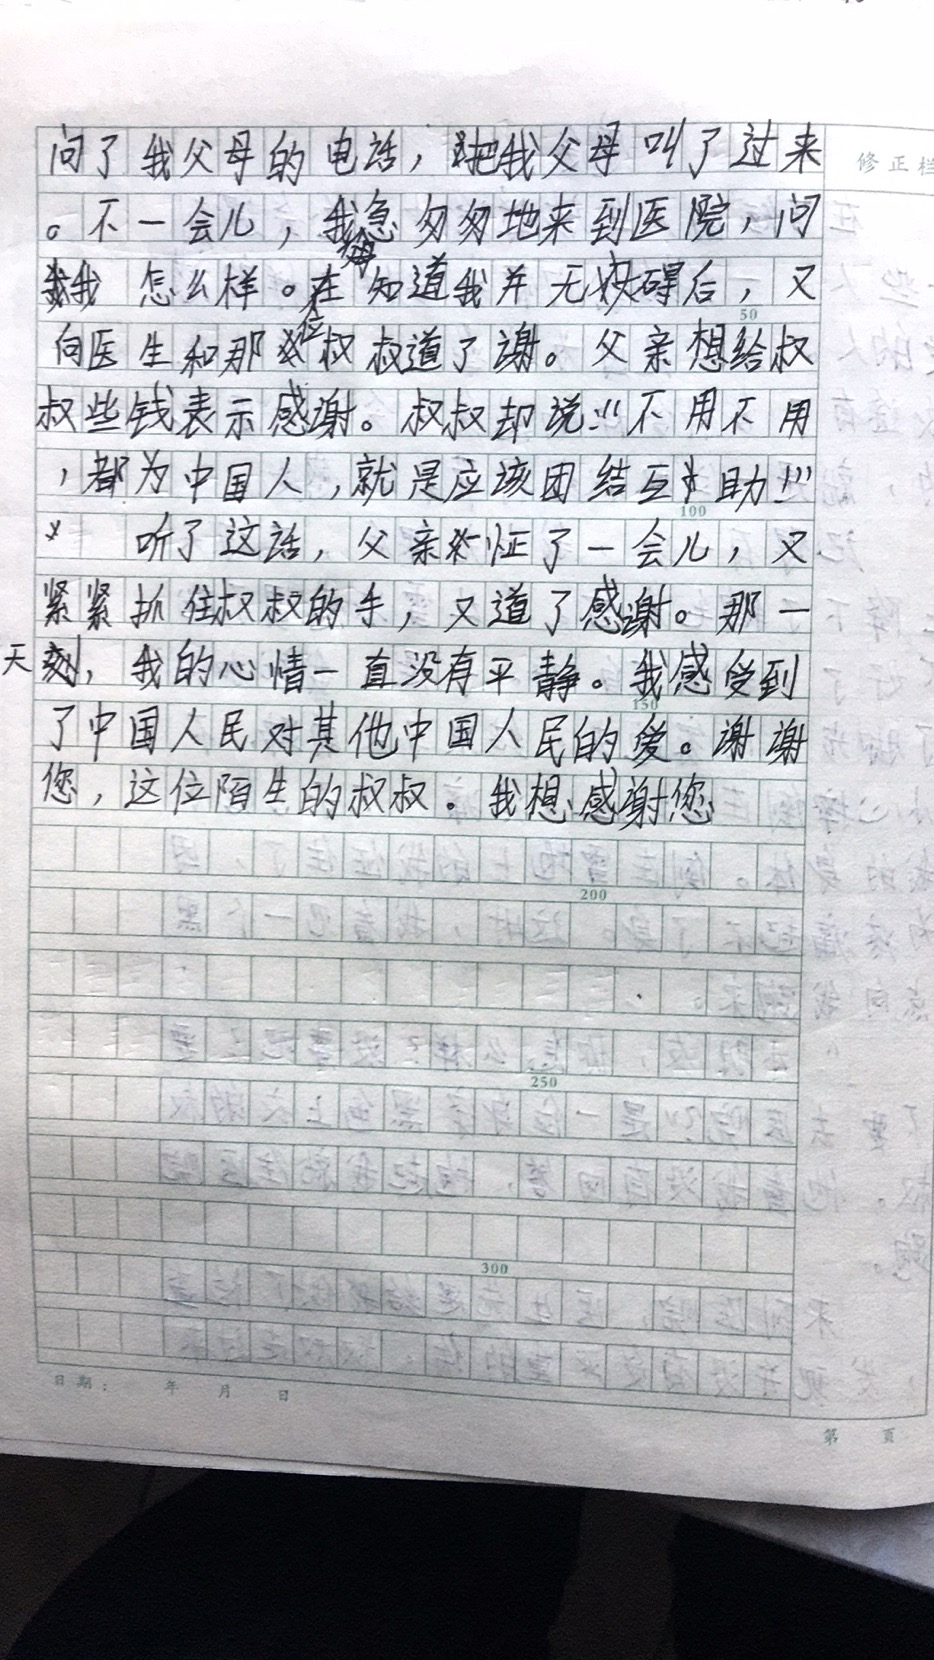 问了我父母的电话，把我父母叫了过来 修正栏
。不一会儿，我爸急匆匆地来到医院，问
我怎么样。在知道我并无大碍后，又 50
向医生和那位叔叔道了谢。父亲想给叔
叔些钱表示感谢。叔叔却说:“不用不用
，都为中国人，就是应该团结互助!!” 100
听了这话，父亲怔了一会儿，又
紧紧抓住叔叔的手，又道了感谢。那一
天，我的心情一直没有平静。我感受到 150
了中国人民对其他中国人民的爱。谢谢
您，这位陌生的叔叔。我想感谢您
200
250
300
日期： 年 月 日
第 页